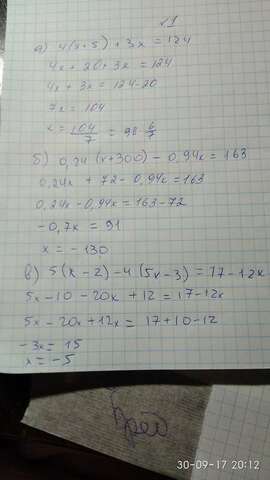 √1
а) 4(x+5)+3x=124
4x+20+3x=124
4x+3x=124-20
7x=104
x=104/7=98 6/7
б) 0,24(x+300)-0,94x=163
0,24x+72-0,94x=163
0,24x-0,94x=163-72
-0,7x=91
x=-130
в) 5(x-2)-4(5x-3)=17-12x
5x-10-20x+12=17-12x
5x-20x+12x=17+10-12
-3x=15
x=-5
30-09-17 20:12